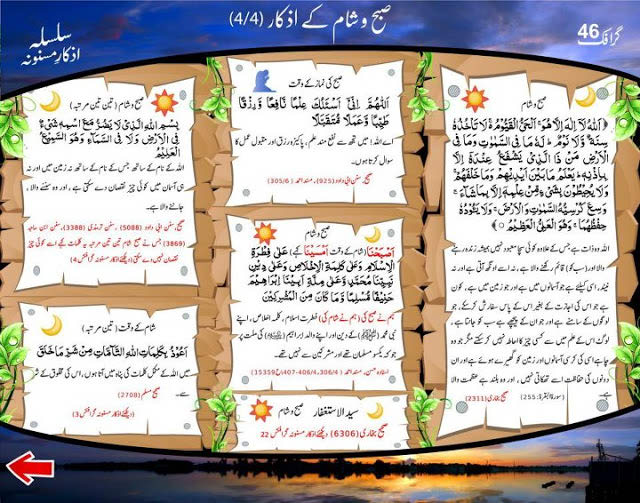 صبح و شام کے اذکار (4/4)
گرافک 46
سلسلہ
اذکارِ مسنونہ
صبح و شام
اَللهُ لَا اِلٰهَ اِلَّا هُوَ اَلْحَيُّ الْقَيُّوْمُ لَا تَاْخُذُهٗ
سِنَةٌ وَّلَا نَوْمٌ لَهٗ مَا فِي السَّمٰوٰتِ وَمَا فِي
الْاَرْضِ مَنْ ذَا الَّذِيْ يَشْفَعُ عِنْدَهٗٓ اِلَّا
بِاِذْنِهٖ يَعْلَمُ مَا بَيْنَ اَيْدِيْهِمْ وَمَا خَلْفَهُمْ
وَلَا يُحِيْطُوْنَ بِشَيْءٍ مِّنْ عِلْمِهٖٓ اِلَّا بِمَا شَآءَ
وَسِعَ كُرْسِيُّهُ السَّمٰوٰتِ وَالْاَرْضَ وَلَا يَئُوْدُهٗ
حِفْظُهُمَا وَهُوَ الْعَلِيُّ الْعَظِيْمُ
اللہ وہ ذات ہے جس کے علاوہ کوئی سچا معبود نہیں ہمیشہ زندہ رہنے
والا اور (سب کو) قائم رکھنے والا ہے، نہ اسے اونگھ آتی ہے اور نہ
نیند، اسی کیلئے ہے جو آسمانوں میں ہے اور جو زمین میں ہے، کون
ہے جو اس کی اجازت کے بغیر اس کے پاس سفارش کرسکے، جو
لوگوں کے سامنے ہے اور جو اس کے پیچھے ہے سب کو جانتا ہے، اور
لوگ اس کے علم میں سے کسی چیز کا احاطہ نہیں کرسکتے مگر جو وہ
چاہے اسی کی کرسی آسمانوں اور زمین کو گھیرے ہوئے ہے اور ان
دونوں کی حفاظت اسے تھکاتی نہیں، اور وہ بلند ہے عظمت والا
ہے۔ (سورۃ البقرۃ: 255) صحیح بخاری (2311)
صبح کی نماز کے وقت
اَللّٰهُمَّ اِنِّيْ اَسْئَلُكَ عِلْمًا نَّافِعًا وَّرِزْقًا
طَيِّبًا وَّعَمَلًا مُّتَقَبَّلًا
اے اللہ! میں تجھ سے نفع مند علم، پاکیزہ رزق اور مقبول عمل کا
سوال کرتا ہوں۔
صحیح: سنن ابی داود (925)، مسند احمد (305/6)
صبح و شام
اَصْبَحْنَا (شام کے وقت اَمْسَيْنَا کہے) عَلٰى فِطْرَةِ
الْاِسْلَامِ وَعَلٰى كَلِمَةِ الْاِخْلَاصِ وَعَلٰى دِيْنِ
نَبِيِّنَا مُحَمَّدٍ وَّعَلٰى مِلَّةِ اَبِيْنَا اِبْرَاهِيْمَ
حَنِيْفًا مُّسْلِمًا وَّمَا كَانَ مِنَ الْمُشْرِكِيْنَ
ہم نے صبح کی (ہم نے شام کی) فطرت اسلام، کلمہ اخلاص، اپنے
نبی محمد (ﷺ) کے دین اور اپنے والد ابراہیم کی ملت پر
جو یکسو مسلمان تھے اور مشرکین سے نہیں تھے۔
اسنادہ حسن: مسند احمد (406/4،306/4-407/ح 15359)
سید الاستغفار صبح و شام
صحیح بخاری (6306) (دیکھئے اذکار مسنونہ گرافکس 22)
صبح و شام (تین تین مرتبہ)
بِسْمِ اللهِ الَّذِيْ لَا يَضُرُّ مَعَ اسْمِهٖ شَيْءٌ
فِي الْاَرْضِ وَلَا فِي السَّمَآءِ وَهُوَ السَّمِيْعُ
الْعَلِيْمُ
اللہ کے نام کے ساتھ جس کے نام کے ساتھ نہ زمین میں اور نہ
ہی آسمان میں کوئی چیز نقصان دے سکتی ہے، اور وہ سننے والا،
جاننے والا ہے۔
صحیح: سنن ابی داود (5088)، سنن ترمذی (3388)، سنن ابن ماجہ
(3869) جس نے صبح شام تین تین مرتبہ یہ کلمات کہے اسے کوئی چیز
نقصان نہیں دے سکتی (دیکھئے اذکار مسنونہ گرافکس 4)
شام کے وقت (تین مرتبہ)
اَعُوْذُ بِكَلِمَاتِ اللهِ التَّآمَّاتِ مِنْ شَرِّ مَا خَلَقَ
میں اللہ کے مکمل کلمات کی پناہ میں آتا ہوں، اس کی مخلوق کے شر
سے۔ صحیح مسلم (2708)
(دیکھئے اذکار مسنونہ گرافکس 3)